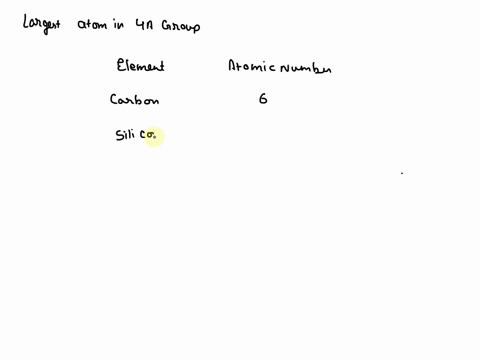 Largest atom in 4A Group
Element Atomic Number
Carbon 6
Silico